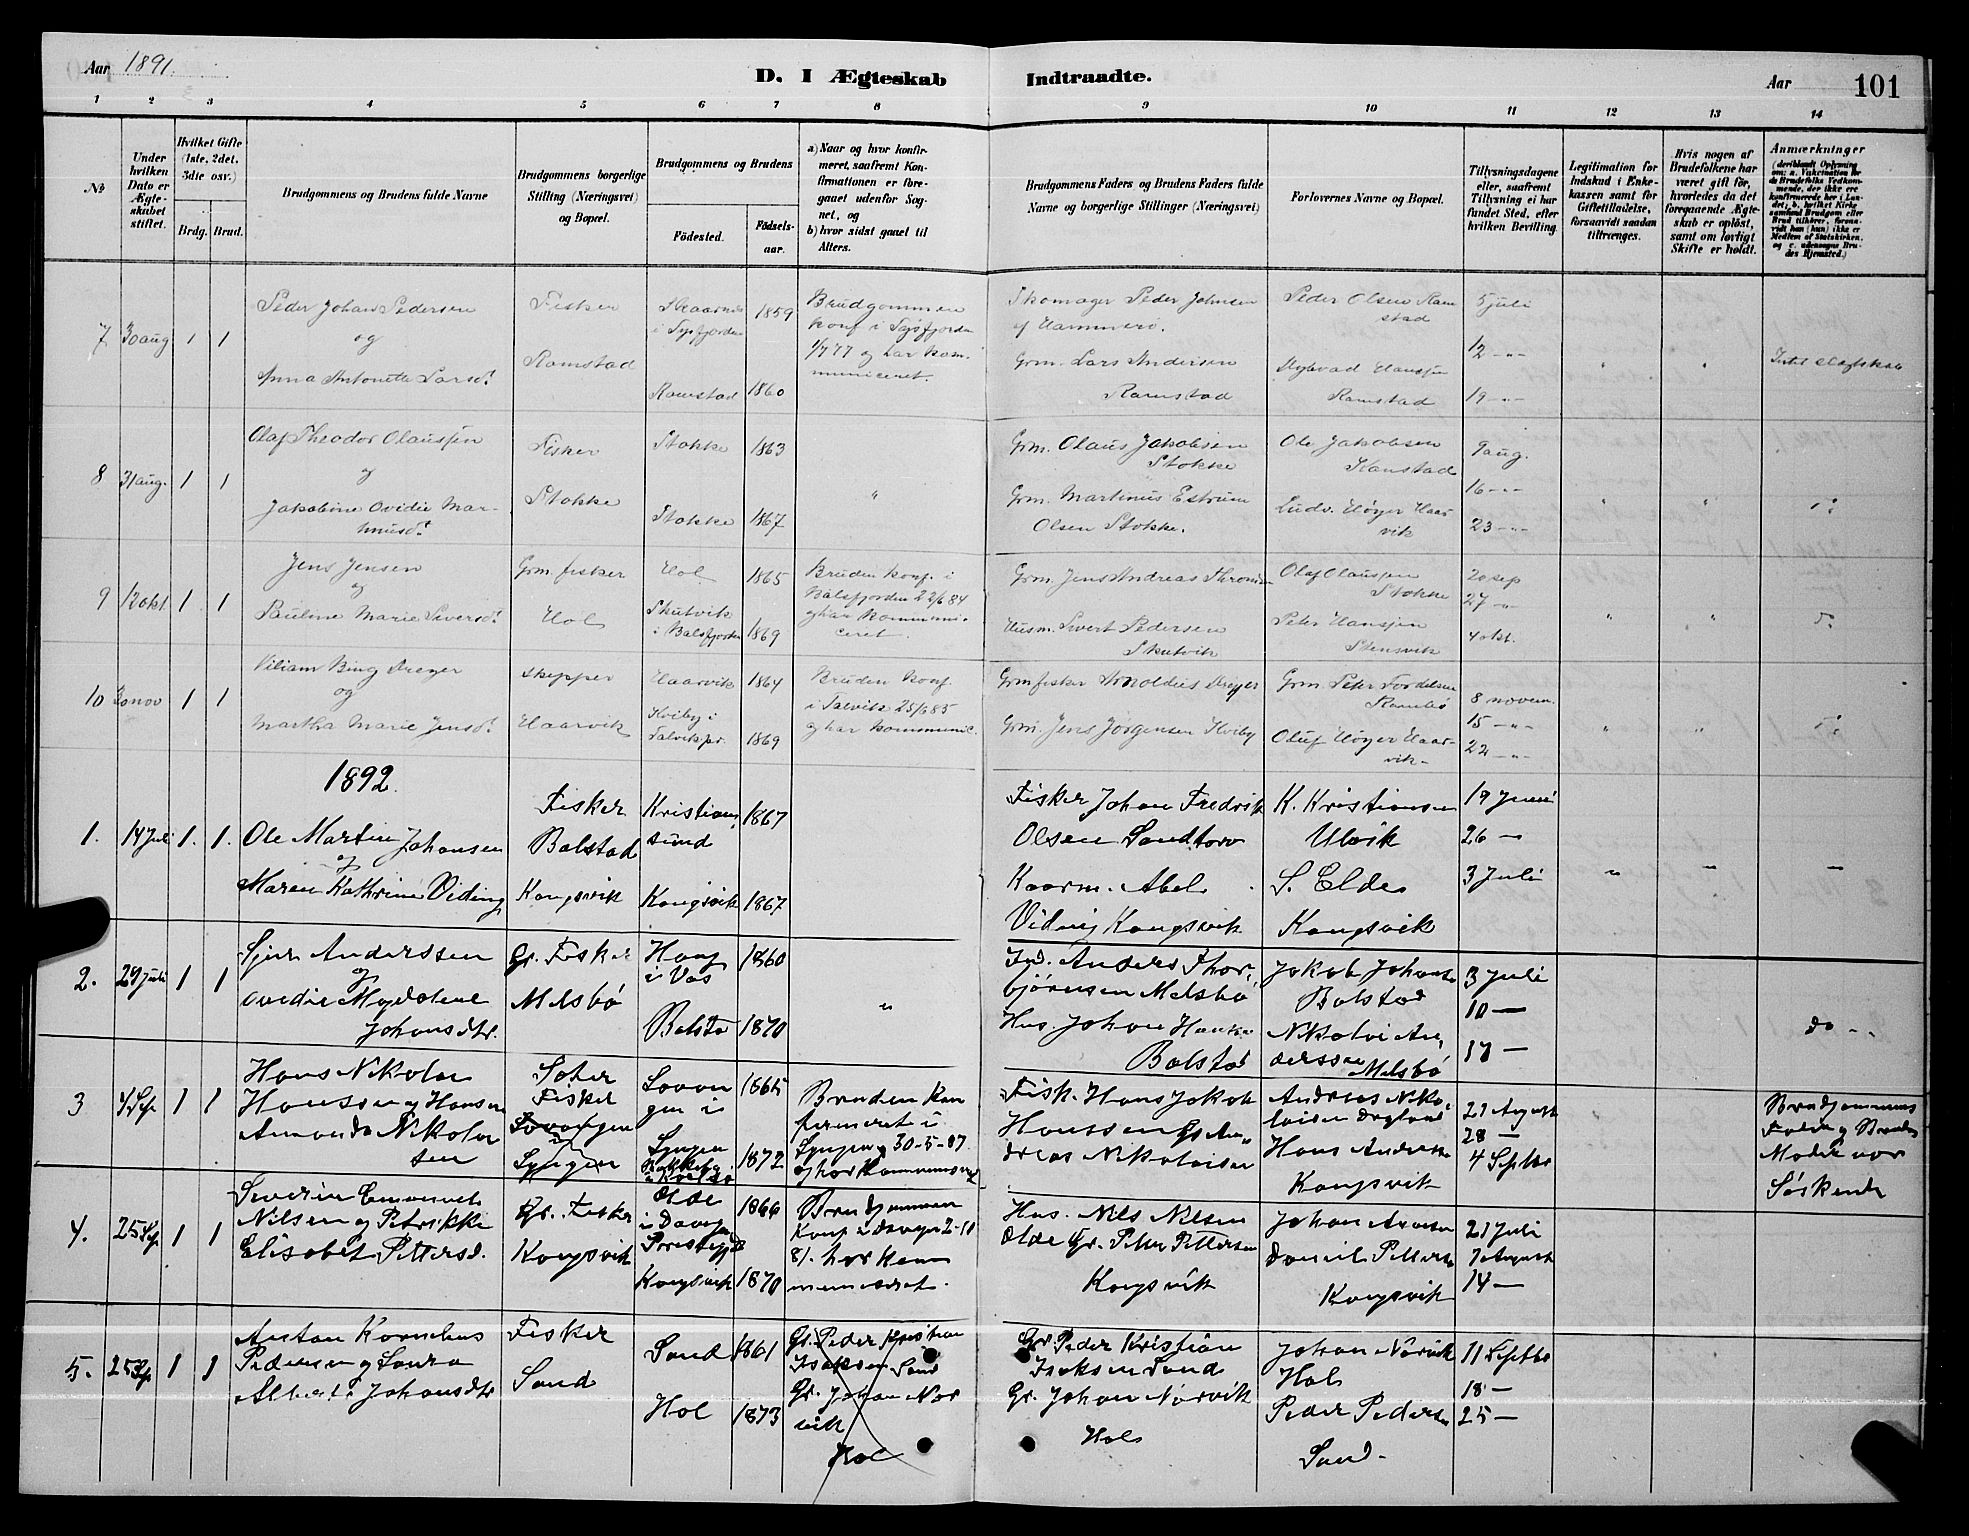 Aar 1891.
D. I Ægteskab Indtraadte.
Aar 101
1 2 3 4 5 6 7 8 9 10 11 12 13 14
No
Under hvilken Dato er Ægteskabet stiftet.
Hvilket Gifte (1ste, 2det, 3die osv.)
Brdg. Brud.
Brudgommens og Brudens fulde Navne
Brudgommens borgerlige Stilling (Næringsvei) og Bopæl.
Brudgommens og Brudens
Fødested. Fødselsaar.
a) Naar og hvor konfirmeret, saafremt Konfirmationen er foregaaet udenfor Sognet, og
b) hvor sidst gaaet til Alters.
Brudgommens Faders og Brudens Faders fulde Navne og borgerlige Stillinger (Næringsvei)
Forlovernes Navne og Bopæl.
Tillysningsdagene eller, saafremt Tillysning ei har fundet Sted, efter hvilken Bevilling.
Legitimation for Indskud i Enkekassen samt for Giftetilladelse, forsaavidt saadan tiltrænges.
Hvis nogen af Brudefolkene har været gift før, hvorledes da det foregaaende Ægteskab er opløst, samt om lovligt Skifte er holdt.
Anmærkninger
7 30 aug 1 1
Peder Johan Pedersen
og
Anna Antonette Larsd.
Fisker
Ramstad
i Tysfjorden 1859
Ramstad 1860
Brudgommen
konf i Tysfjorden
1/7 77 og har kom-
municeret.
Skomager Peder Johnsen
af Hammerø.
Grm. Lars Andersen
Ramstad
Peder Olsen Ram
stad
Hansen
Ramstad
5 juli
12 -"-
19 -"-
Intet slægtskab
8 31 aug. 1 1
Olaf Theodor Olaussen
og
Jakobine Ovidie Mar-
tinusd.
Fisker
Stokke
Stokke 1863
Stokke 1867
"
Grm. Olaus Jakobsen
Stokke
Grm. Martinus Estrum
Olsen Stokke.
Ole Jakobsen
Ramstad
Ludv. Høyer Haar
vik
9 aug.
16 -"-
23 -"-
9 12 okt 1 1
Jens Jensen
og
Pauline Marie Siversd.
Grm. fisker
Hol
Hol 1865
Skutvik
i Balsfjorden 1869
Bruden konf. i
Balsfjorden 22/6 84
og har kommuni-
ceret.
Grm. Jens Andreas
Husm. Sivert Pedersen
Skutvik
Olaf Olaussen
Stokke
Peter Hansen
Stensvik
20 sep
27 -"-
4 okt.
10 30 nov 1 1
Viliam Bing Dreyer
og
Martha Marie Jensd.
Skipper
Haarvik
Haarvik 1864
Kviby i
Talvik pr. 1869
Bruden konf.
i Talvik 25/6 85
og har kommunic.
Grm fisker Arnoldus Dreyer
Grm. Jens Jörgensen Kviby
Grm. Peter
Oluf Høyer Haar-
vik-
8 novem.
15 -"-
22 -"-
1892.
1. 14 Juli 1. 1.
Ole Martin Johansen
og
Maren Kathrine Viding
Fisker
Balstad
Kongsvik
Kristian
sund 1867
Kongsvik 1867
Fisker Johan Fredrik
Olsen Sandtorv
Kaarm. Abel
Viding Kongsvik
K. Kristiansen
Ulvik
S. Elde
Kongsvik
19 Juni
26 -
3 Juli
2. 29 juli 1 1
Anderssen
og
Ovidie Magdalene
Johansdtr.
Gr. Fisker
Melsbö
Haug
i Vos 1860
Balsta 1870
"
Ind. Anders Thor-
björnsen Melsbö
Hus. Johan
Balstad
Jakob Johans
Balstad
Nikolai An-
derssen Melsbö
3 Juli
10 -
17 -
do
3 4 Sep 1 1
Hans Nikolai
Hanssen og Hansin
Amanda Nikolai
sen
Fisker
Lyngen
1865
Lyngen
1872
Bruden kon
firmeret i
Lyngen 30-5-87
Fisk. Hans Jakob
Hanssen Gr An-
dreas Nikolaisen
Andreas Niko-
laisen
Hans Anders
Kongsvik
21 August
28 -
4 Septbr
Brudgommens
Fader og Brudens
Moder var
Söskende
4. 25 Sep 1 1
Severin Emanuel
Nilsen og Petrikke
Elisabet Pettersd.
Gr. Fisker
Kongsvik
Elde
1866
Kongsvik 1870
Brudgommen
81. har kom
municeret.
Hus. Nils Nilsen
Elde Gr. Petter Pettersen
Kongsvik
Johan
Daniel Petters
Kongsvik
21 Juli
7 August
14 -
5. 25 Sp 1 1
Anton Kornelius
Pedersen og Laura
Alberta Johansdtr
Fisker
Sand
Sand 1861
Hol 1873
Gr. Peder Kristian
Isaksen Sand
Gr. Johan Nor
vik
Hol
Gr Peder Kristian
Isaksen Sand
Gr. Johan Norvik
Hols
Johan Norvik
Hol
Peder Peders
Sand-
11 Septbr
18 -
25 -